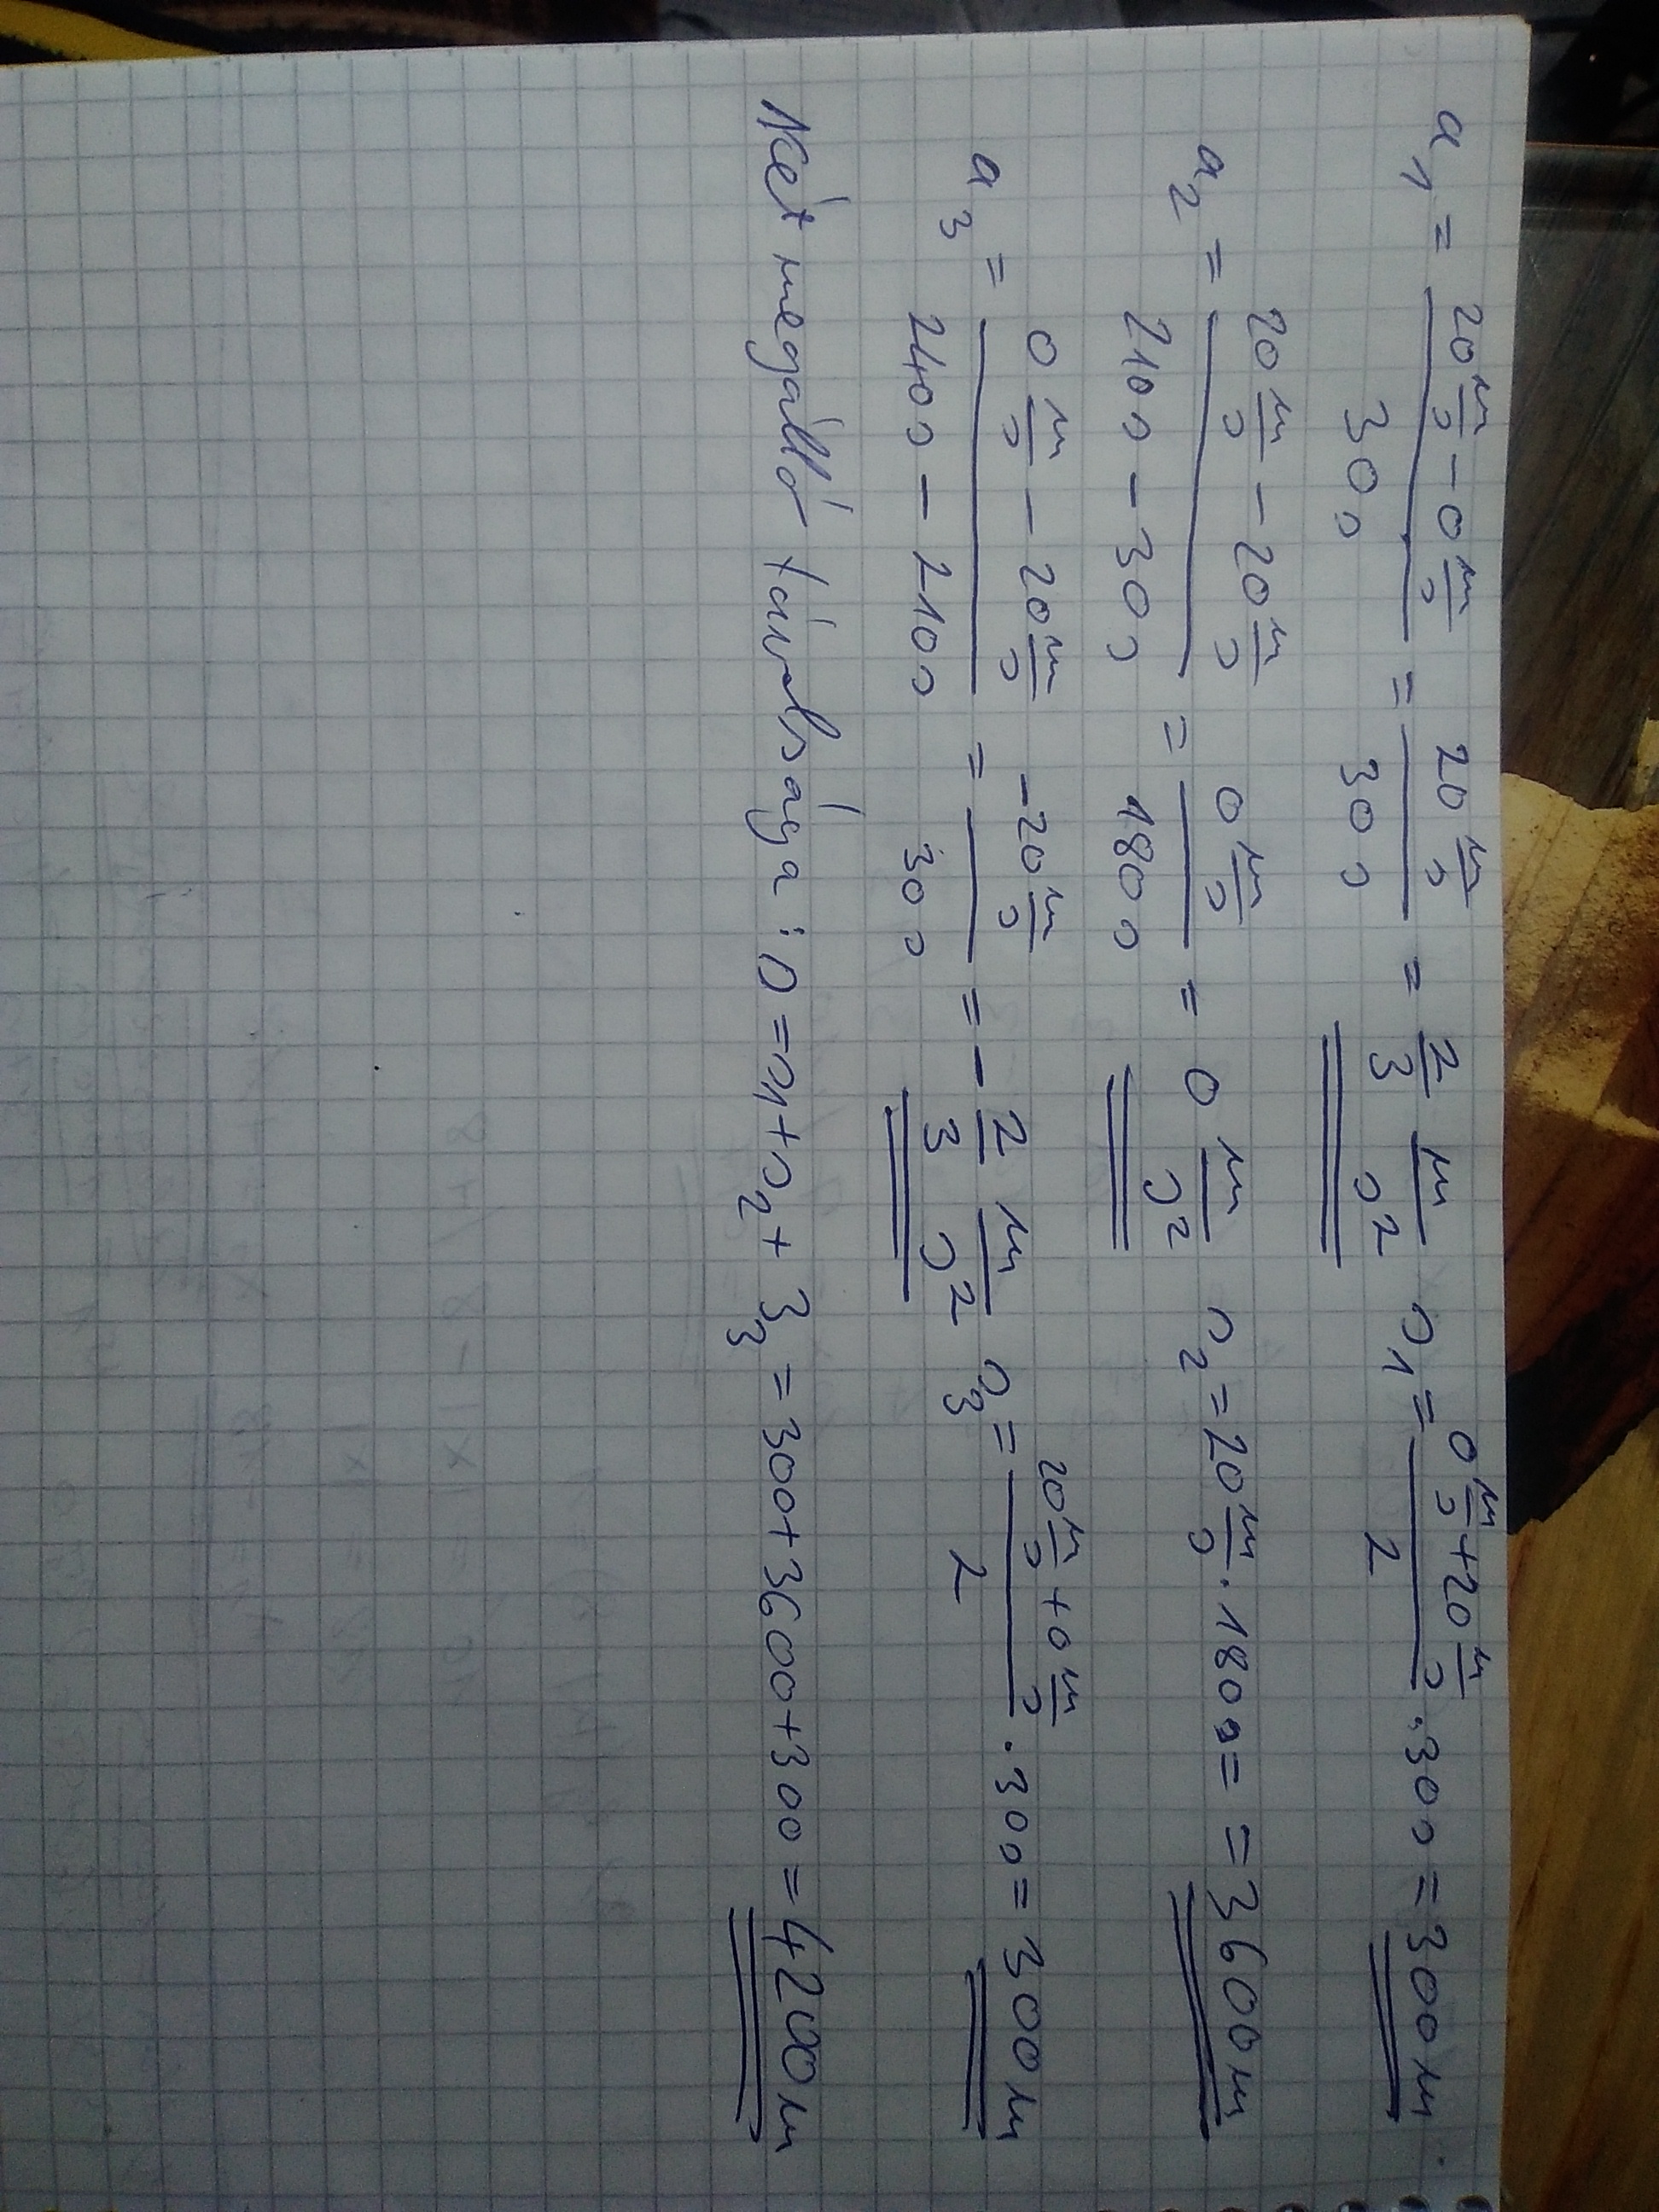 a₁ = (20 m/s − 0 m/s) / 30 s = 20 m/s / 30 s = 2/3 m/s² s₁ = (0 m/s + 20 m/s) / 2 · 30 s = 300 m
a₂ = (20 m/s − 20 m/s) / (210 s − 30 s) = 0 m/s / 180 s = 0 m/s² s₂ = 20 m/s · 180 s = = 3600 m
a₃ = (0 m/s − 20 m/s) / (240 s − 210 s) = −20 m/s / 30 s = − 2/3 m/s² s₃ = (20 m/s + 0 m/s) / 2 · 30 s = 300 m
Két megálló távolsága : s = s1 + s₂ + 3₃ = 300 + 3600 + 300 = 4200 m